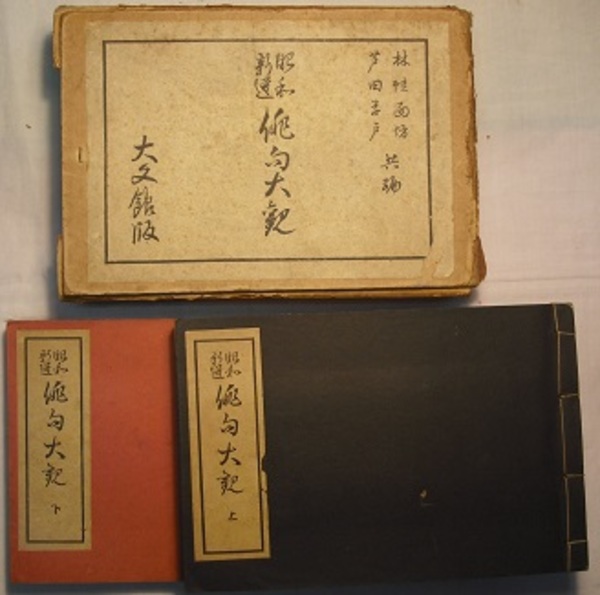 林蛙面坊
芦田
共編
昭和
新選
俳句大觀
大文館版
昭和
新選
俳句大觀
上
昭和
新選
俳句大觀
下